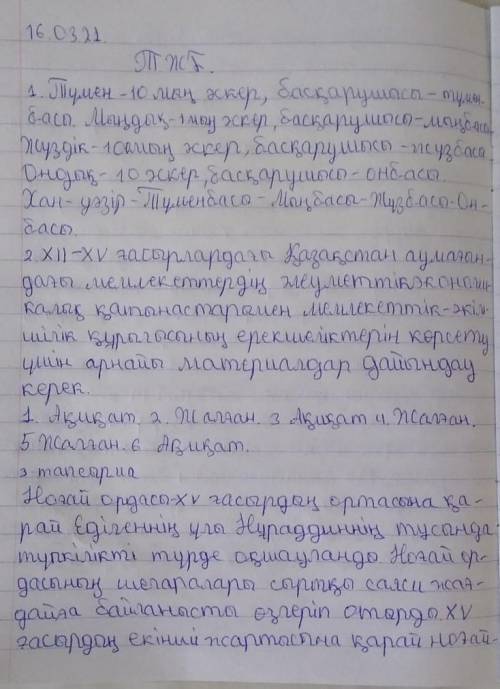 16.03.21.
ТЖБ.
1. Түмен - 10 мың әскер, басқарушысы - түмен-
басы. Мыңдық - 1 мың әскер, басқарушысы - мыңбасы
Жүздік - 10 мың әскер, басқарушысы - жүзбасы
Ондық - 10 әскер, басқарушысы - онбасы.
Хан - уәзір - Түменбасы - Мыңбасы - Жүзбасы - Он-
басы.
2 XII-XV ғасырлардағы Қазақстан аумағын-
дағы мемлекеттердің әлеуметтік экономи-
калық қатынастарымен мемлекеттік-әкім-
шілік құрылысының ерекшеліктерін көрсету
үшін арнайы материалдар дайындау
керек.
1. Ақиқат. 2. Жалған. 3 Ақиқат 4. Жалған.
5 Жалған. 6 Ақиқат.
3-тапсырма
Ноғай ордасы XV ғасырдың ортасына қа-
рай Едігеннің ұлы Нұраддиннің тұсында
түпкілікті түрде оқшауланды. Ноғай ор-
дасының шегаралары сыртқы саяси жағ-
дайға байланысты өзгеріп отырды. XV
ғасырдың екінші жартысына қарай ноғай-